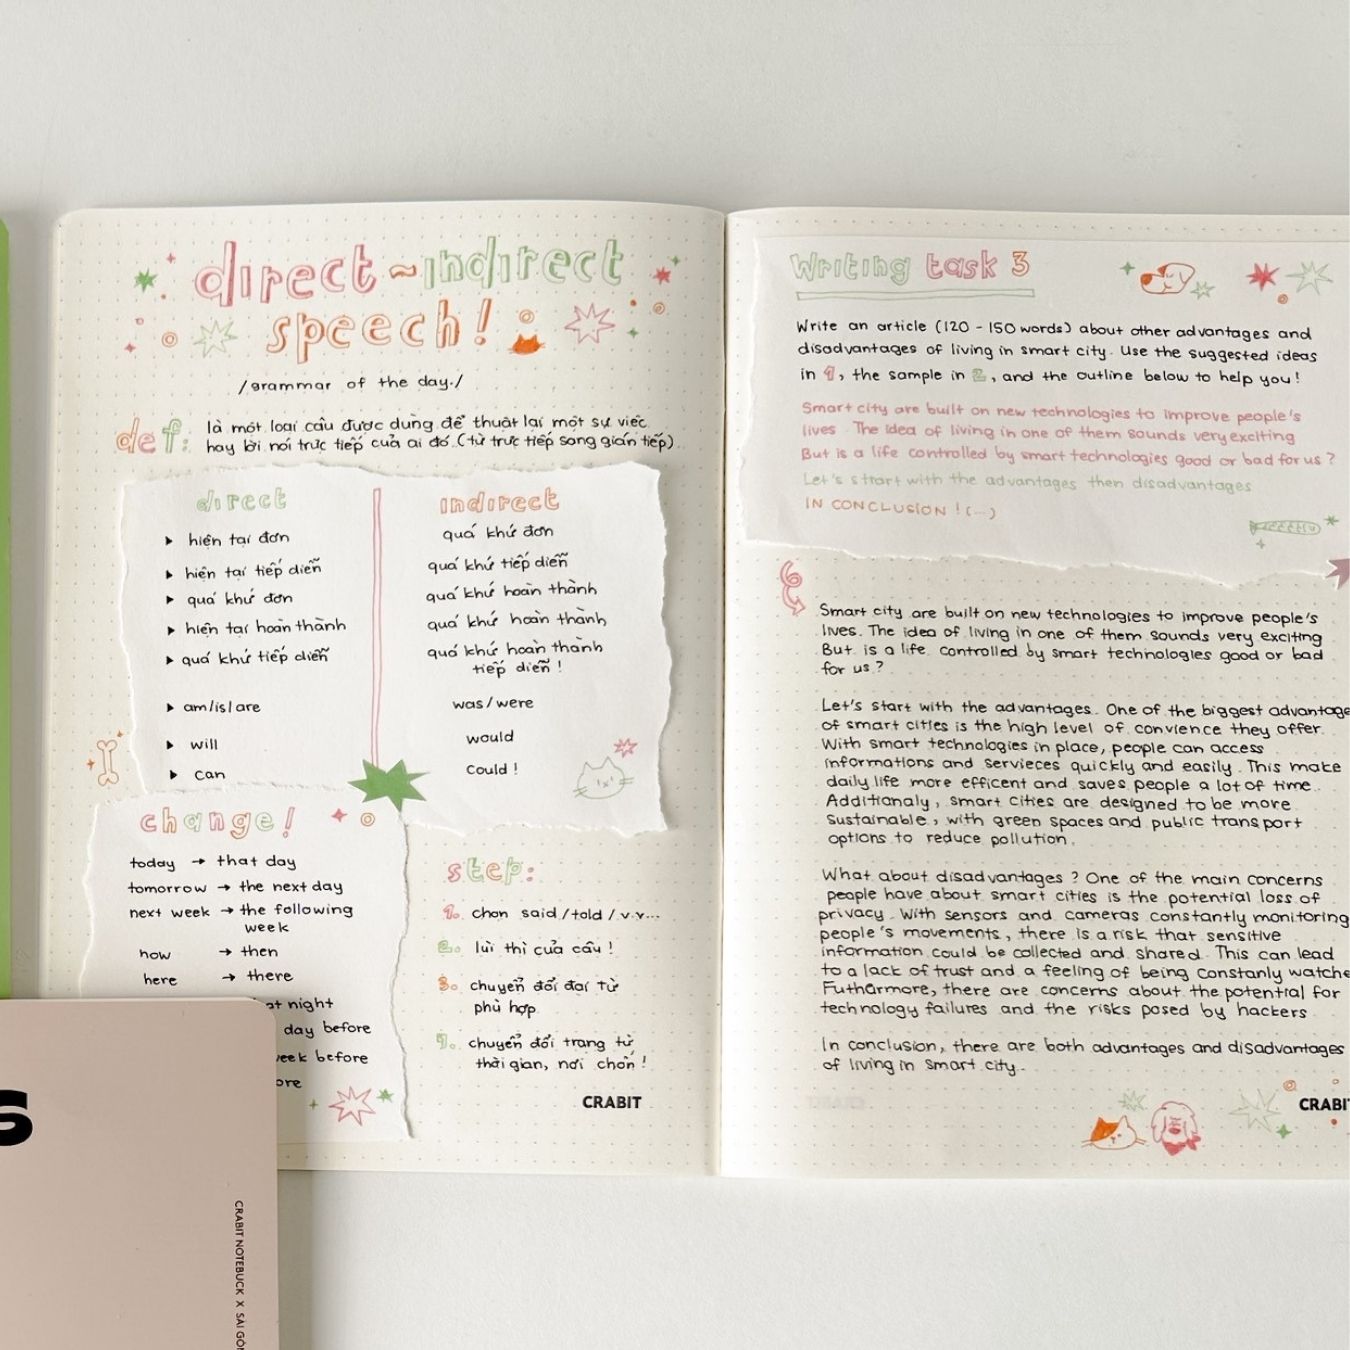 direct ~ indirect
speech!
/grammar of the day./
def: là một loại câu được dùng để thuật lại một sự việc
hay lời nói trực tiếp của ai đó. (từ trực tiếp sang gián tiếp)
direct
▸ hiện tại đơn
▸ hiện tại tiếp diễn
▸ quá khứ đơn
▸ hiện tại hoàn thành
▸ quá khứ tiếp diễn
▸ am/is/are
▸ will
▸ can
indirect
quá khứ đơn
quá khứ tiếp diễn
quá khứ hoàn thành
quá khứ hoàn thành
quá khứ hoàn thành
tiếp diễn!
was/were
would
could!
change!
today → that day
tomorrow → the next day
next week → the following
week
now → then
here → there
night
day before
week before
step:
1. chọn said/told/v.v...
2. lùi thì của câu!
3. chuyển đổi đại từ
phù hợp
4. chuyển đổi trạng từ
thời gian, nơi chốn!
CRABIT
Writing task 3
Write an article (120 - 150 words) about other advantages and
disadvantages of living in smart city. Use the suggested ideas
in 1, the sample in 2, and the outline below to help you!
Smart city are built on new technologies to improve people's
lives. The idea of living in one of them sounds very exciting
But is a life controlled by smart technologies good or bad for us?
Let's strart with the advantages then disadvantages
IN CONCLUSION! (...)
Smart city are built on new technologies to improve people's
lives. The idea of living in one of them sounds very exciting
But is a life controlled by smart technologies good or bad
for us?
Let's start with the advantages. One of the biggest advantage
of smart cities is the high level of convience they offer.
With smart technologies in place, people can access
informations and servieces quickly and easily. This make
daily life more efficent and saves people a lot of time.
Additionaly, smart cities are designed to be more
sustainable, with green spaces and public transport
options to reduce pollution.
What about disadvantages? One of the main concerns
people have about smart cities is the potential loss of
privacy. With sensors and cameras constantly monitoring
people's movements, there is a risk that sensitive
information could be collected and shared. This can lead
to a lack of trust and a feeling of being constanly watche
Futhermore, there are concerns about the potential for
technology failures and the risks posed by hackers
In conclusion, there are both advantages and disadvantages
of living in smart city.
CRABIT
S
CRABIT NOTEBUCK X SÀI GÒN